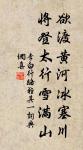 欲渡黃河冰塞川
將登太行雪滿山
李白行路難其一詞典
網